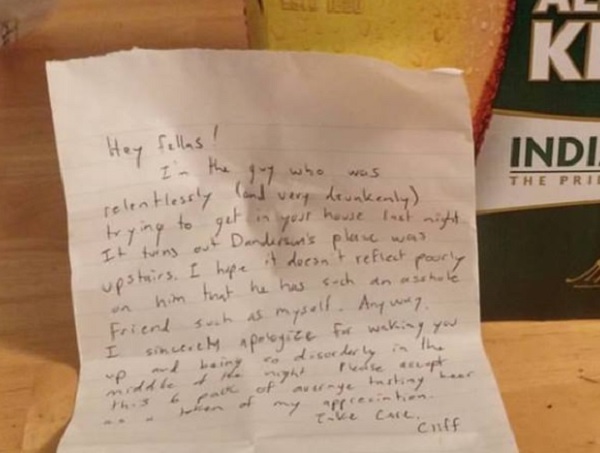 Hey fellas!
I'm the guy who was
relentlessly (and very drunkenly)
trying to get in your house last night.
It turns out Danderson's place was
upstairs. I hope it doesn't reflect poorly
on him that he has such an asshole
friend such as myself. Anyway,
I sincerely apologize for waking you
up and being so disorderly in the
middle of the night Please accept
this 6 pack of average tasting beer
as a token of my appreciation.
Take Care,
Cliff
KI
INDI
THE PRI